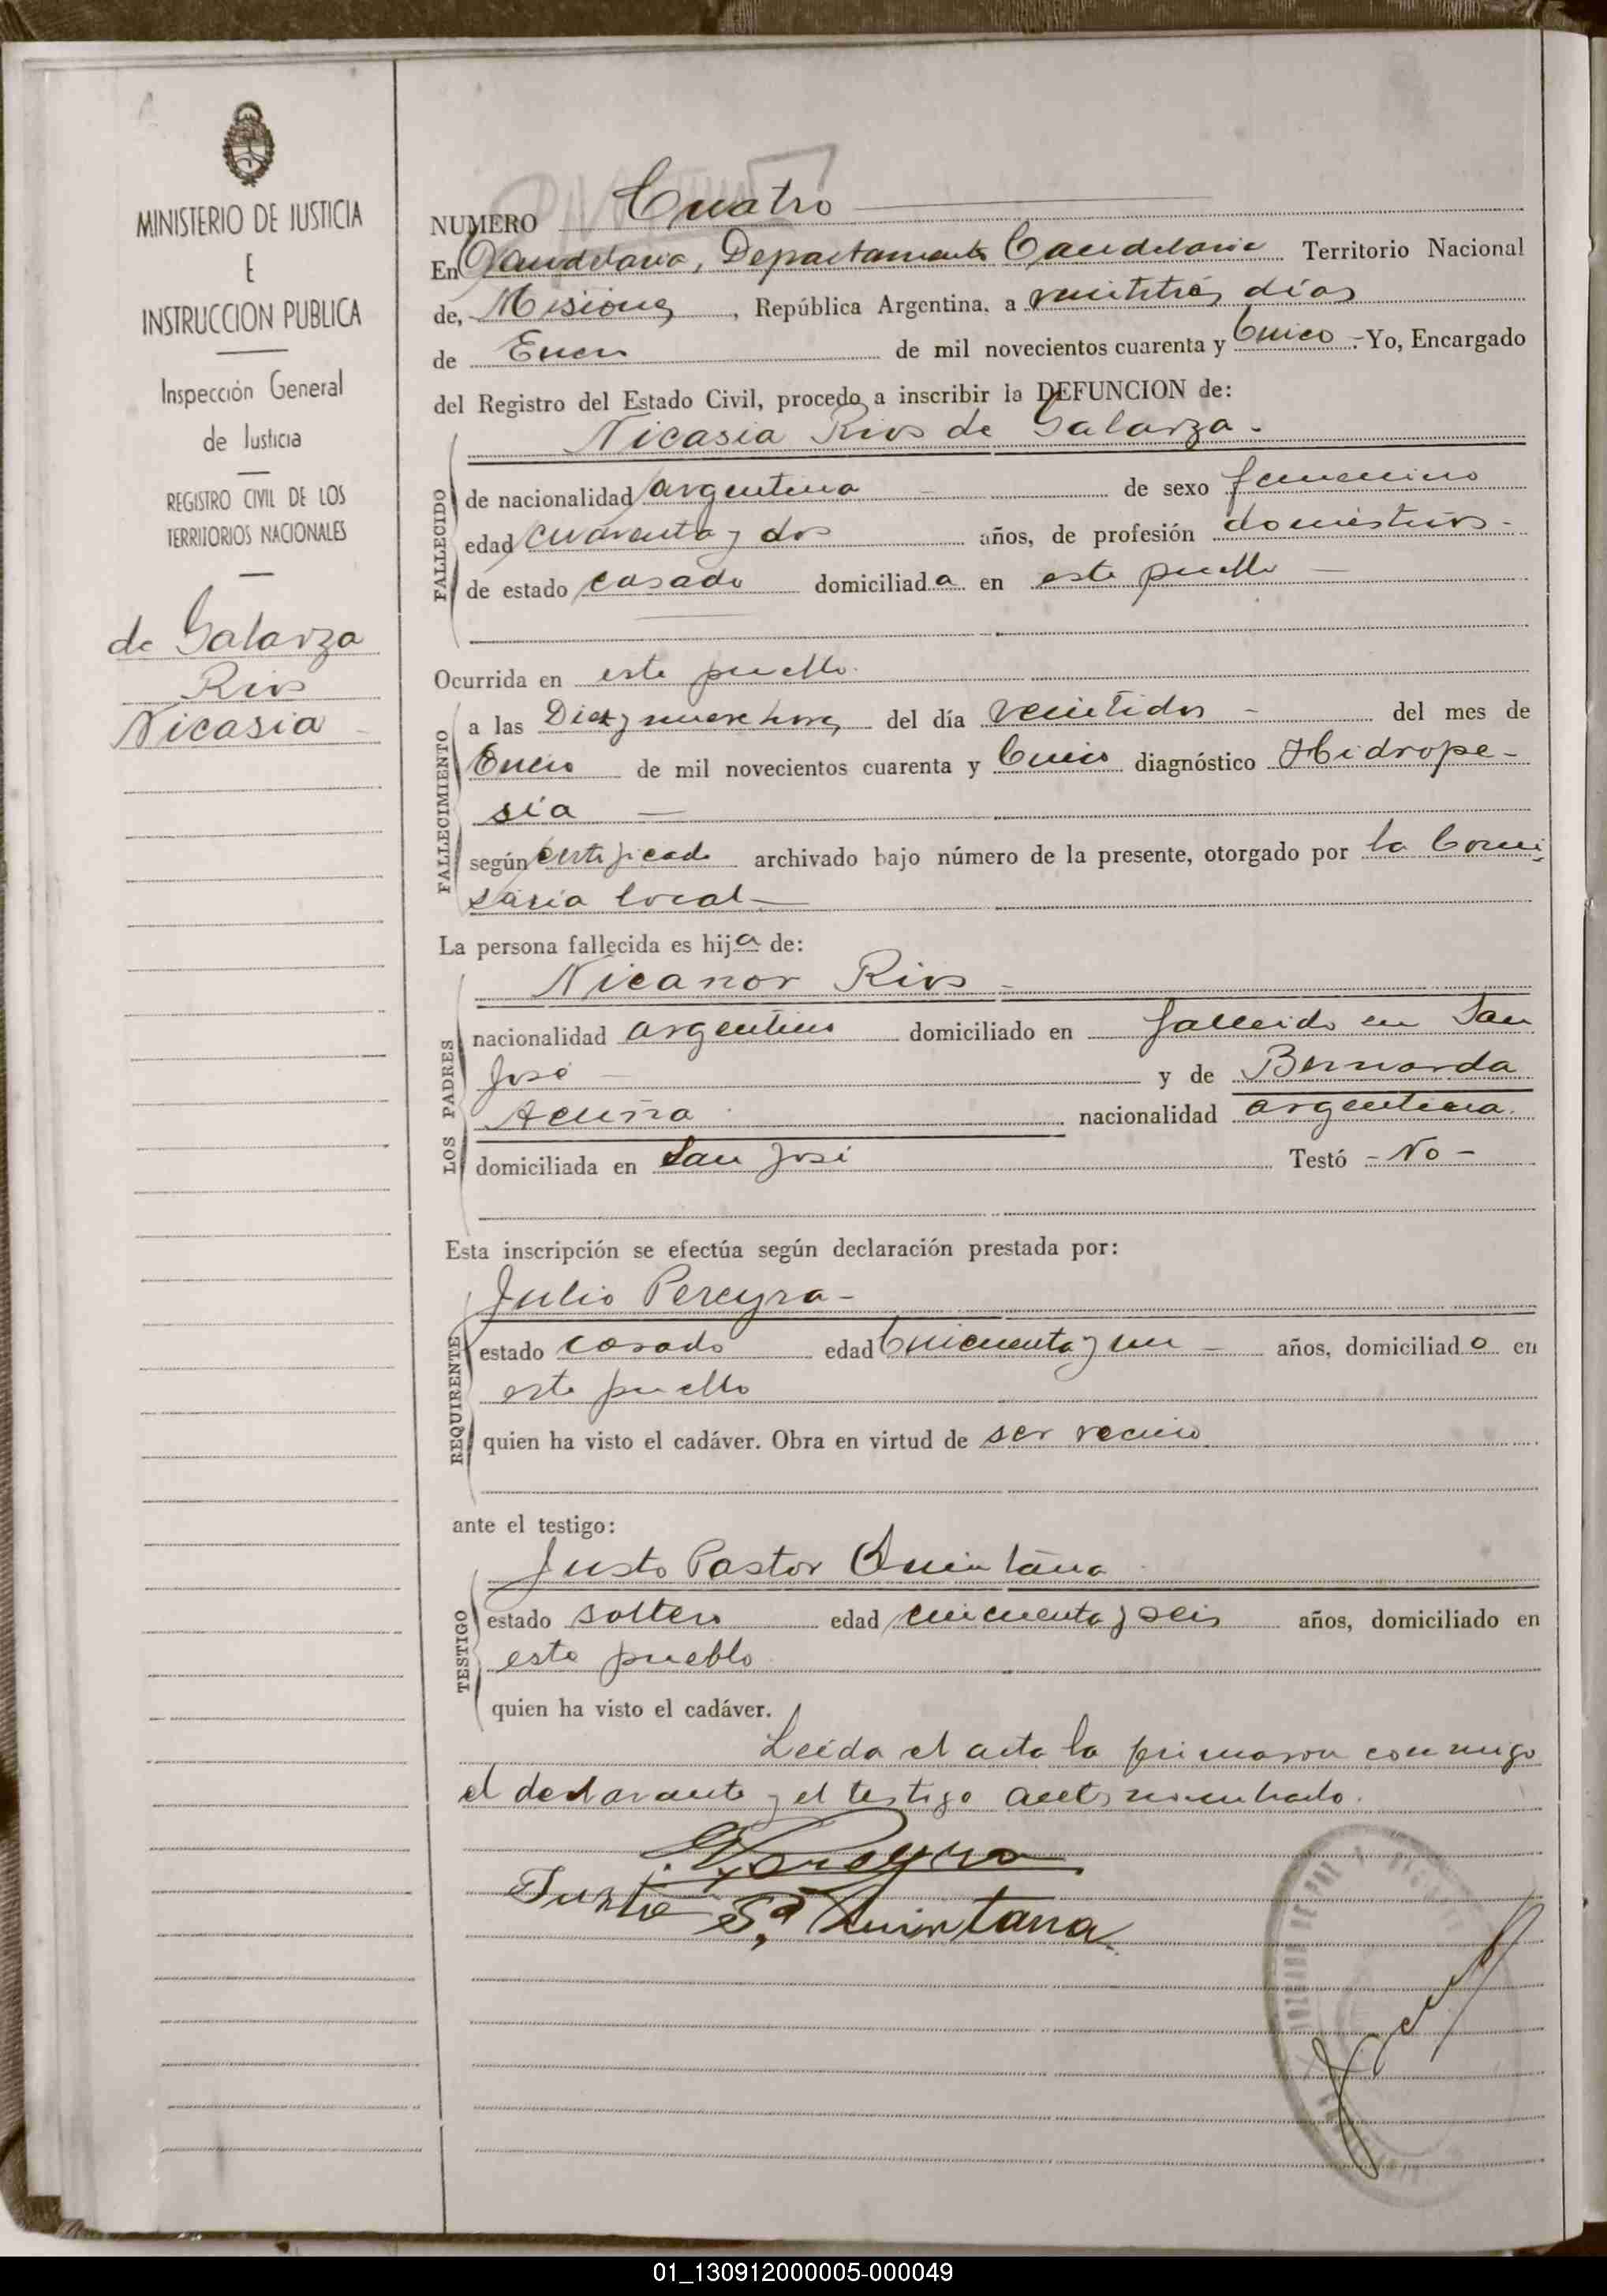 MINISTERIO DE JUSTICIA
E
INSTRUCCION PUBLICA
Inspección General
de Justicia
REGISTRO CIVIL DE LOS
TERRITORIOS NACIONALES
de Galarza
Rios
Nicasia
NUMERO Cuatro
En Candelaria, Departamento Candelaria Territorio Nacional
de, Misiones, República Argentina, a veintitrés días
de Enero de mil novecientos cuarenta y Cinco.-Yo, Encargado
del Registro del Estado Civil, procedo a inscribir la DEFUNCION de:
Nicasia Rios de Galarza.
FALLECIDO
de nacionalidad argentina - de sexo femenino
edad cuarenta y dos años, de profesión domésticos.-
de estado casada domiciliada en este pueblo -
Ocurrida en este pueblo.
FALLECIMIENTO
a las Diez y nueve horas del día veintidos - del mes de
Enero de mil novecientos cuarenta y Cinco diagnóstico Hidrope-
sía -
según certificado archivado bajo número de la presente, otorgado por la Comi-
saría local-
La persona fallecida es hija de:
LOS PADRES
Nicanor Rios -
nacionalidad argentino domiciliado en fallecido en San
José - y de Bernarda
Acuña nacionalidad argentina.
domiciliada en San José Testó - No -
Esta inscripción se efectúa según declaración prestada por:
REQUIRENTE
Julio Pereyra-
estado casado edad Cincuenta y un - años, domiciliado en
este pueblo
quien ha visto el cadáver. Obra en virtud de ser vecino
ante el testigo:
TESTIGO
Justo Pastor Quintana
estado soltero edad cincuenta y seis años, domiciliado en
este pueblo
quien ha visto el cadáver.
Leída el acta la firmaron conmigo
el declarante y el testigo antes nombrado.
J. Pereyra
Justo Quintana
01_130912000005-000049